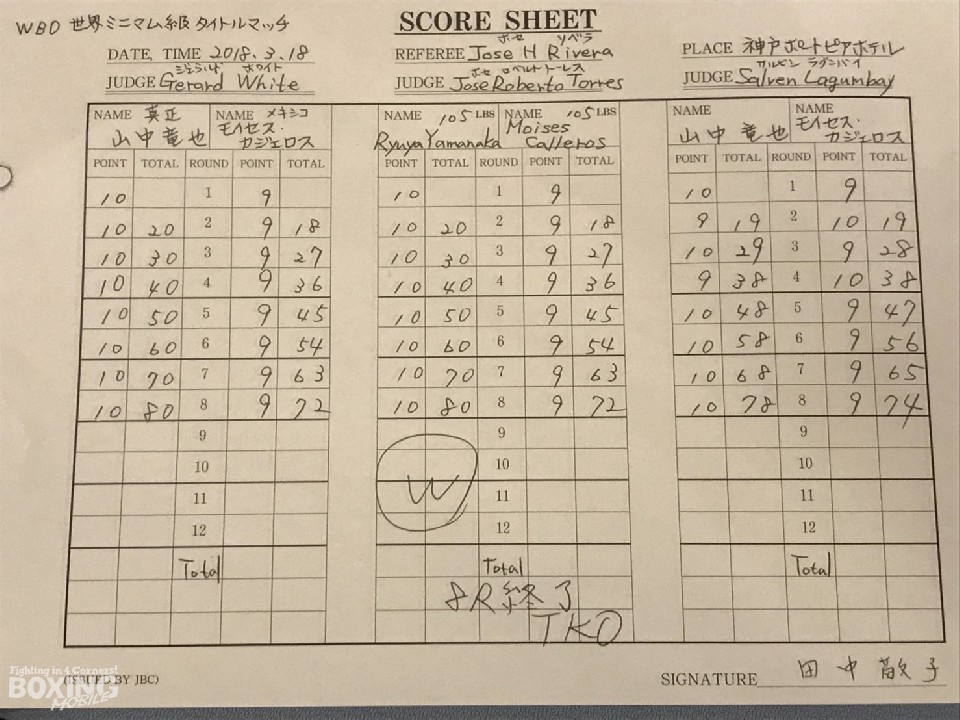 WBO 世界ミニマム級 タイトルマッチ
SCORE SHEET
DATE, TIME 2018.3.18
REFEREE Jose H Rivera
ホセ リベラ
PLACE 神戸ポートピアホテル
JUDGE Gerard White
ジェラルド ホワイト
JUDGE Jose Roberto Torres
ホセ ロベルト トーレス
JUDGE Salven Lagumbay
NAME 真正 NAME メキシコ NAME 105 LBS NAME 105 LBS NAME NAME
山中竜也 モイセス・カジェロス Ryuya Yamanaka Moises Calleros 山中竜也 モイセス・カジェロス
POINT TOTAL ROUND POINT TOTAL POINT TOTAL ROUND POINT TOTAL POINT TOTAL ROUND POINT TOTAL
10 1 9 10 1 9 10 1 9
10 20 2 9 18 10 20 2 9 18 9 19 2 10 19
10 30 3 9 27 10 30 3 9 27 10 29 3 9 28
10 40 4 9 36 10 40 4 9 36 9 38 4 10 38
10 50 5 9 45 10 50 5 9 45 10 48 5 9 47
10 60 6 9 54 10 60 6 9 54 10 58 6 9 56
10 70 7 9 63 10 70 7 9 63 10 68 7 9 65
10 80 8 9 72 10 80 8 9 72 10 78 8 9 74
9 9 9
10 10 10
W
11 11 11
12 12 12
Total Total Total
8R終了
TKO
Fighting in 4 Corners!
BOXING
MOBILE
(ISSUED BY JBC)
SIGNATURE 田中